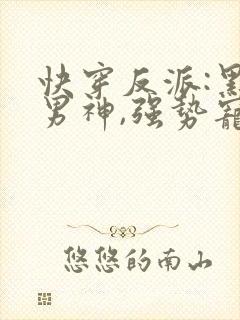 快穿反派:黑
男神,强势宠
悠悠的南山